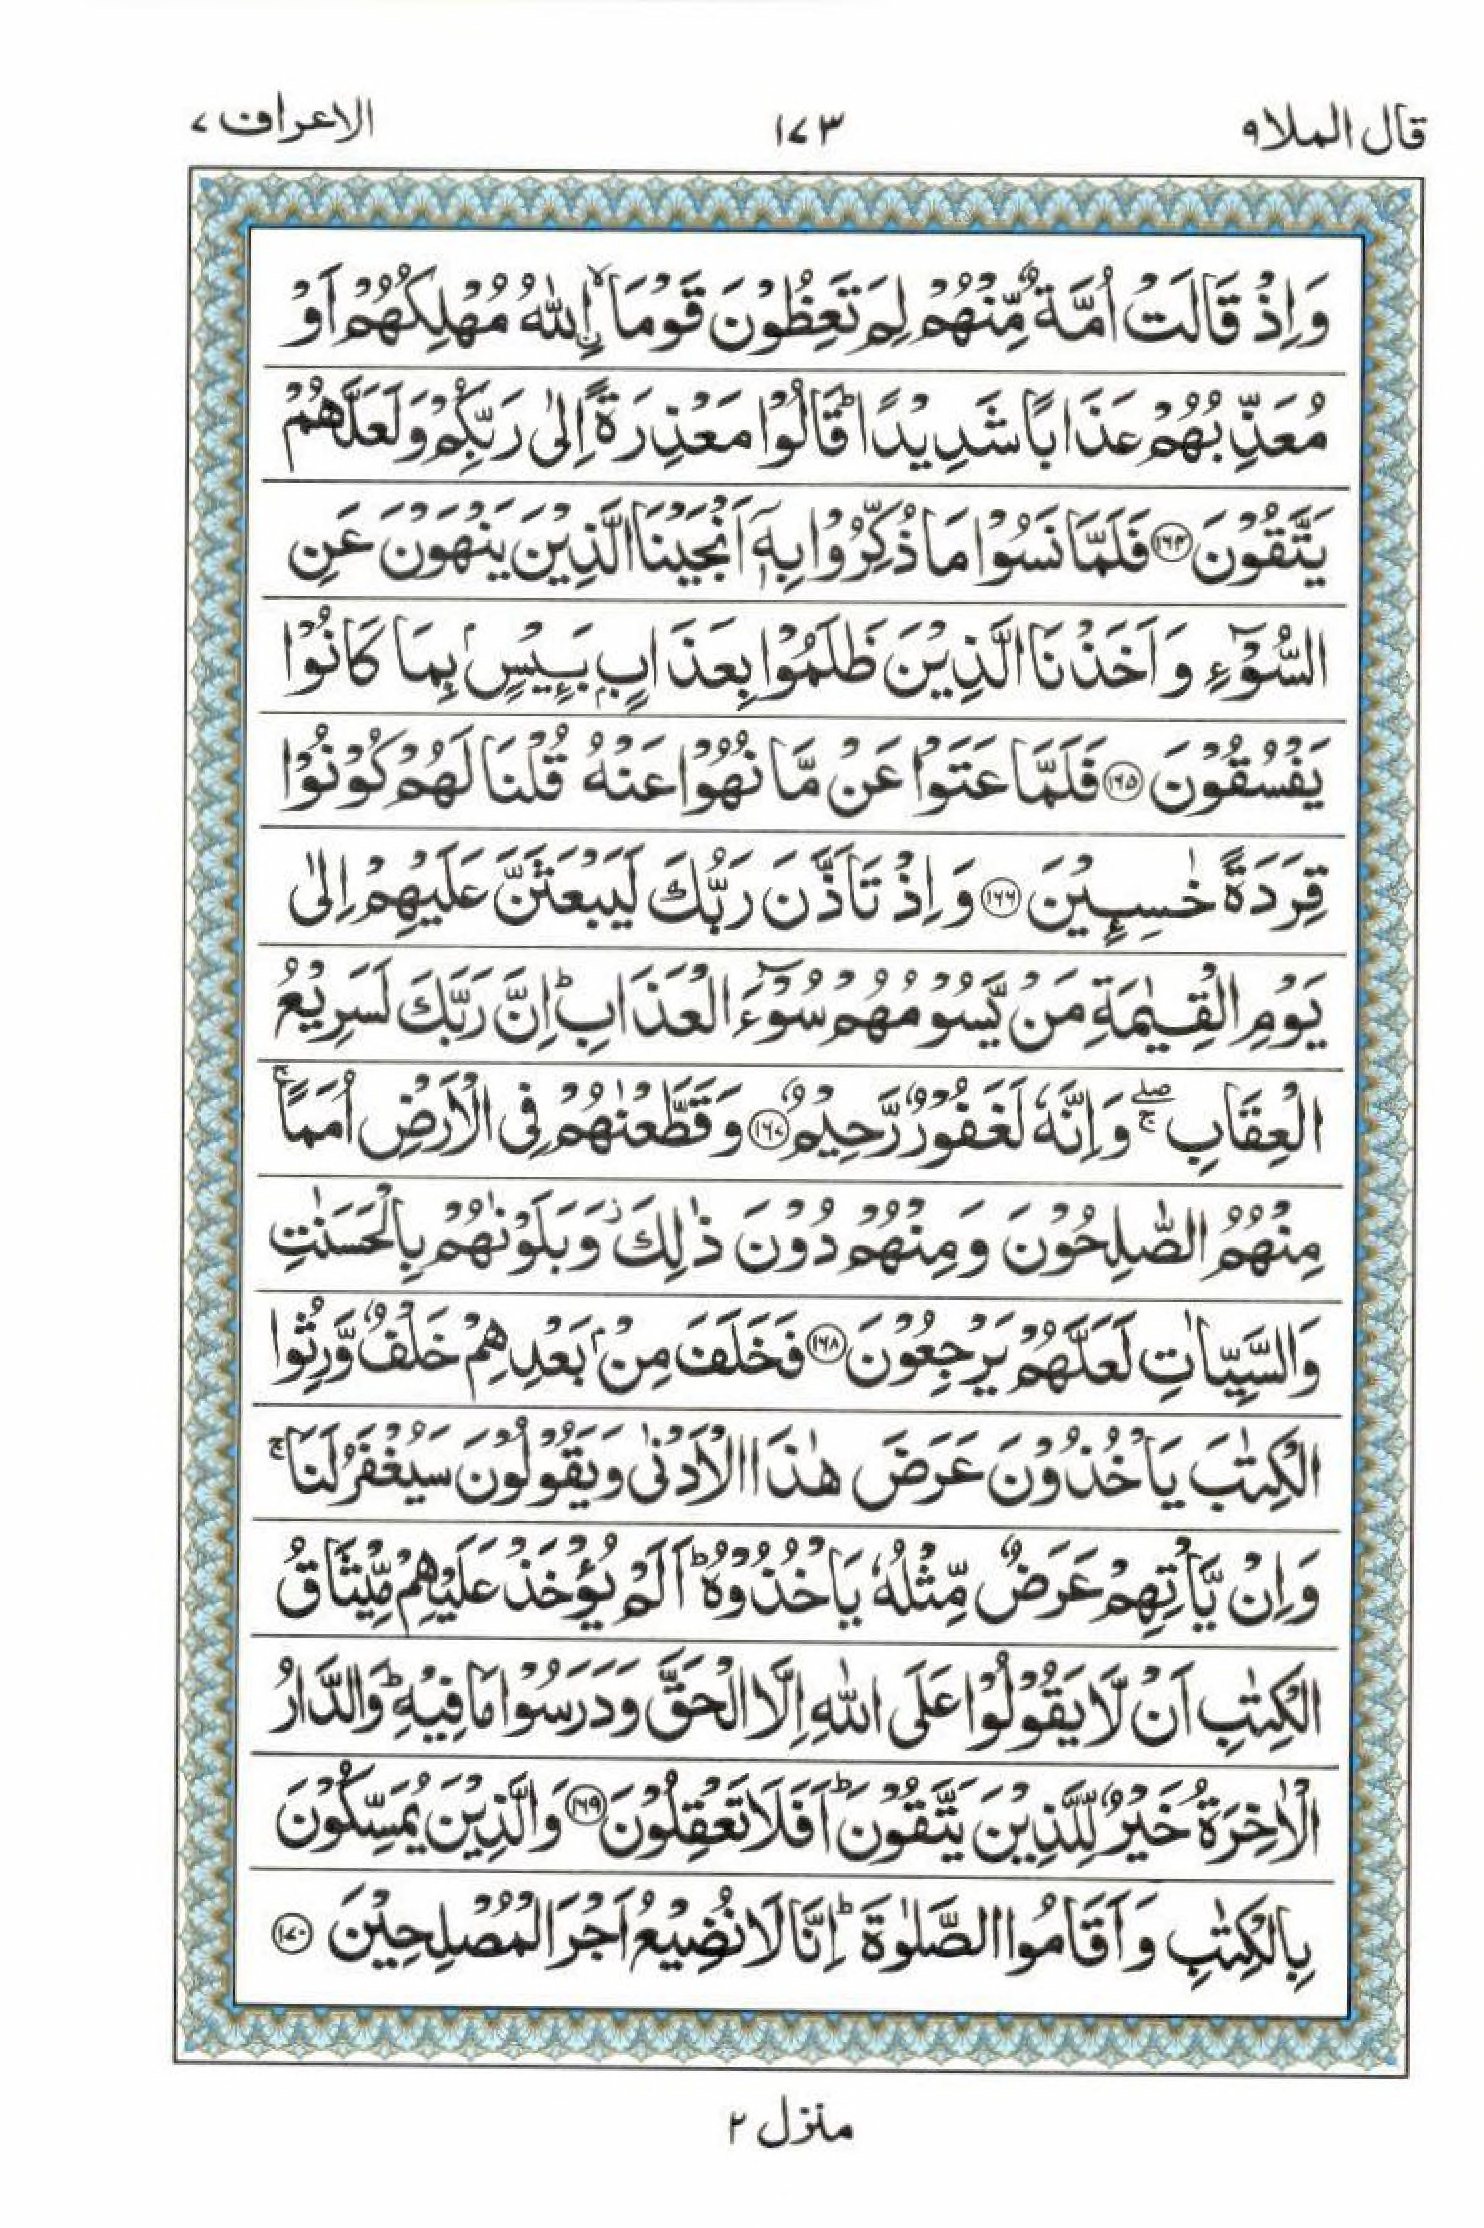 قال الملا ٩
١٧٣
الاعراف ٧
وَاِذْ قَالَتْ اُمَّةٌ مِّنْهُمْ لِمَ تَعِظُوْنَ قَوْمَاۙ اِ۟للّٰهُ مُهْلِكُهُمْ اَوْ
مُعَذِّبُهُمْ عَذَابًا شَدِيْدًاؕ قَالُوْا مَعْذِرَةً اِلٰى رَبِّكُمْ وَلَعَلَّهُمْ
يَتَّقُوْنَ ۝١٦٤ فَلَمَّا نَسُوْا مَا ذُكِّرُوْا بِهٖۤ اَنْجَيْنَا الَّذِيْنَ يَنْهَوْنَ عَنِ
السُّوْٓءِ وَاَخَذْنَا الَّذِيْنَ ظَلَمُوْا بِعَذَابٍۭ بَـِٕيْسٍۭ بِمَا كَانُوْا
يَفْسُقُوْنَ ۝١٦٥ فَلَمَّا عَتَوْا عَنْ مَّا نُهُوْا عَنْهُ قُلْنَا لَهُمْ كُوْنُوْا
قِرَدَةً خٰسِـِٕيْنَ ۝١٦٦ وَاِذْ تَاَذَّنَ رَبُّكَ لَيَبْعَثَنَّ عَلَيْهِمْ اِلٰى
يَوْمِ الْقِيٰمَةِ مَنْ يَّسُوْمُهُمْ سُوْٓءَ الْعَذَابِؕ اِنَّ رَبَّكَ لَسَرِيْعُ
الْعِقَابِ ۖۚ وَاِنَّهٗ لَغَفُوْرٌ رَّحِيْمٌ ۝١٦٧ وَقَطَّعْنٰهُمْ فِى الْاَرْضِ اُمَمًاۚ
مِنْهُمُ الصّٰلِحُوْنَ وَمِنْهُمْ دُوْنَ ذٰلِكَؗ وَبَلَوْنٰهُمْ بِالْحَسَنٰتِ
وَالسَّيِّاٰتِ لَعَلَّهُمْ يَرْجِعُوْنَ ۝١٦٨ فَخَلَفَ مِنْۢ بَعْدِهِمْ خَلْفٌ وَّرِثُوا
الْكِتٰبَ يَاْخُذُوْنَ عَرَضَ هٰذَا الْاَدْنٰى وَيَقُوْلُوْنَ سَيُغْفَرُ لَنَاۚ
وَاِنْ يَّاْتِهِمْ عَرَضٌ مِّثْلُهٗ يَاْخُذُوْهُؕ اَلَمْ يُؤْخَذْ عَلَيْهِمْ مِّيْثَاقُ
الْكِتٰبِ اَنْ لَّا يَقُوْلُوْا عَلَى اللّٰهِ اِلَّا الْحَقَّ وَدَرَسُوْا مَا فِيْهِؕ وَالدَّارُ
الْاٰخِرَةُ خَيْرٌ لِّلَّذِيْنَ يَتَّقُوْنَؕ اَفَلَا تَعْقِلُوْنَ ۝١٦٩ وَالَّذِيْنَ يُمَسِّكُوْنَ
بِالْكِتٰبِ وَاَقَامُوا الصَّلٰوةَؕ اِنَّا لَا نُضِيْعُ اَجْرَ الْمُصْلِحِيْنَ ۝١٧٠
منزل ٢